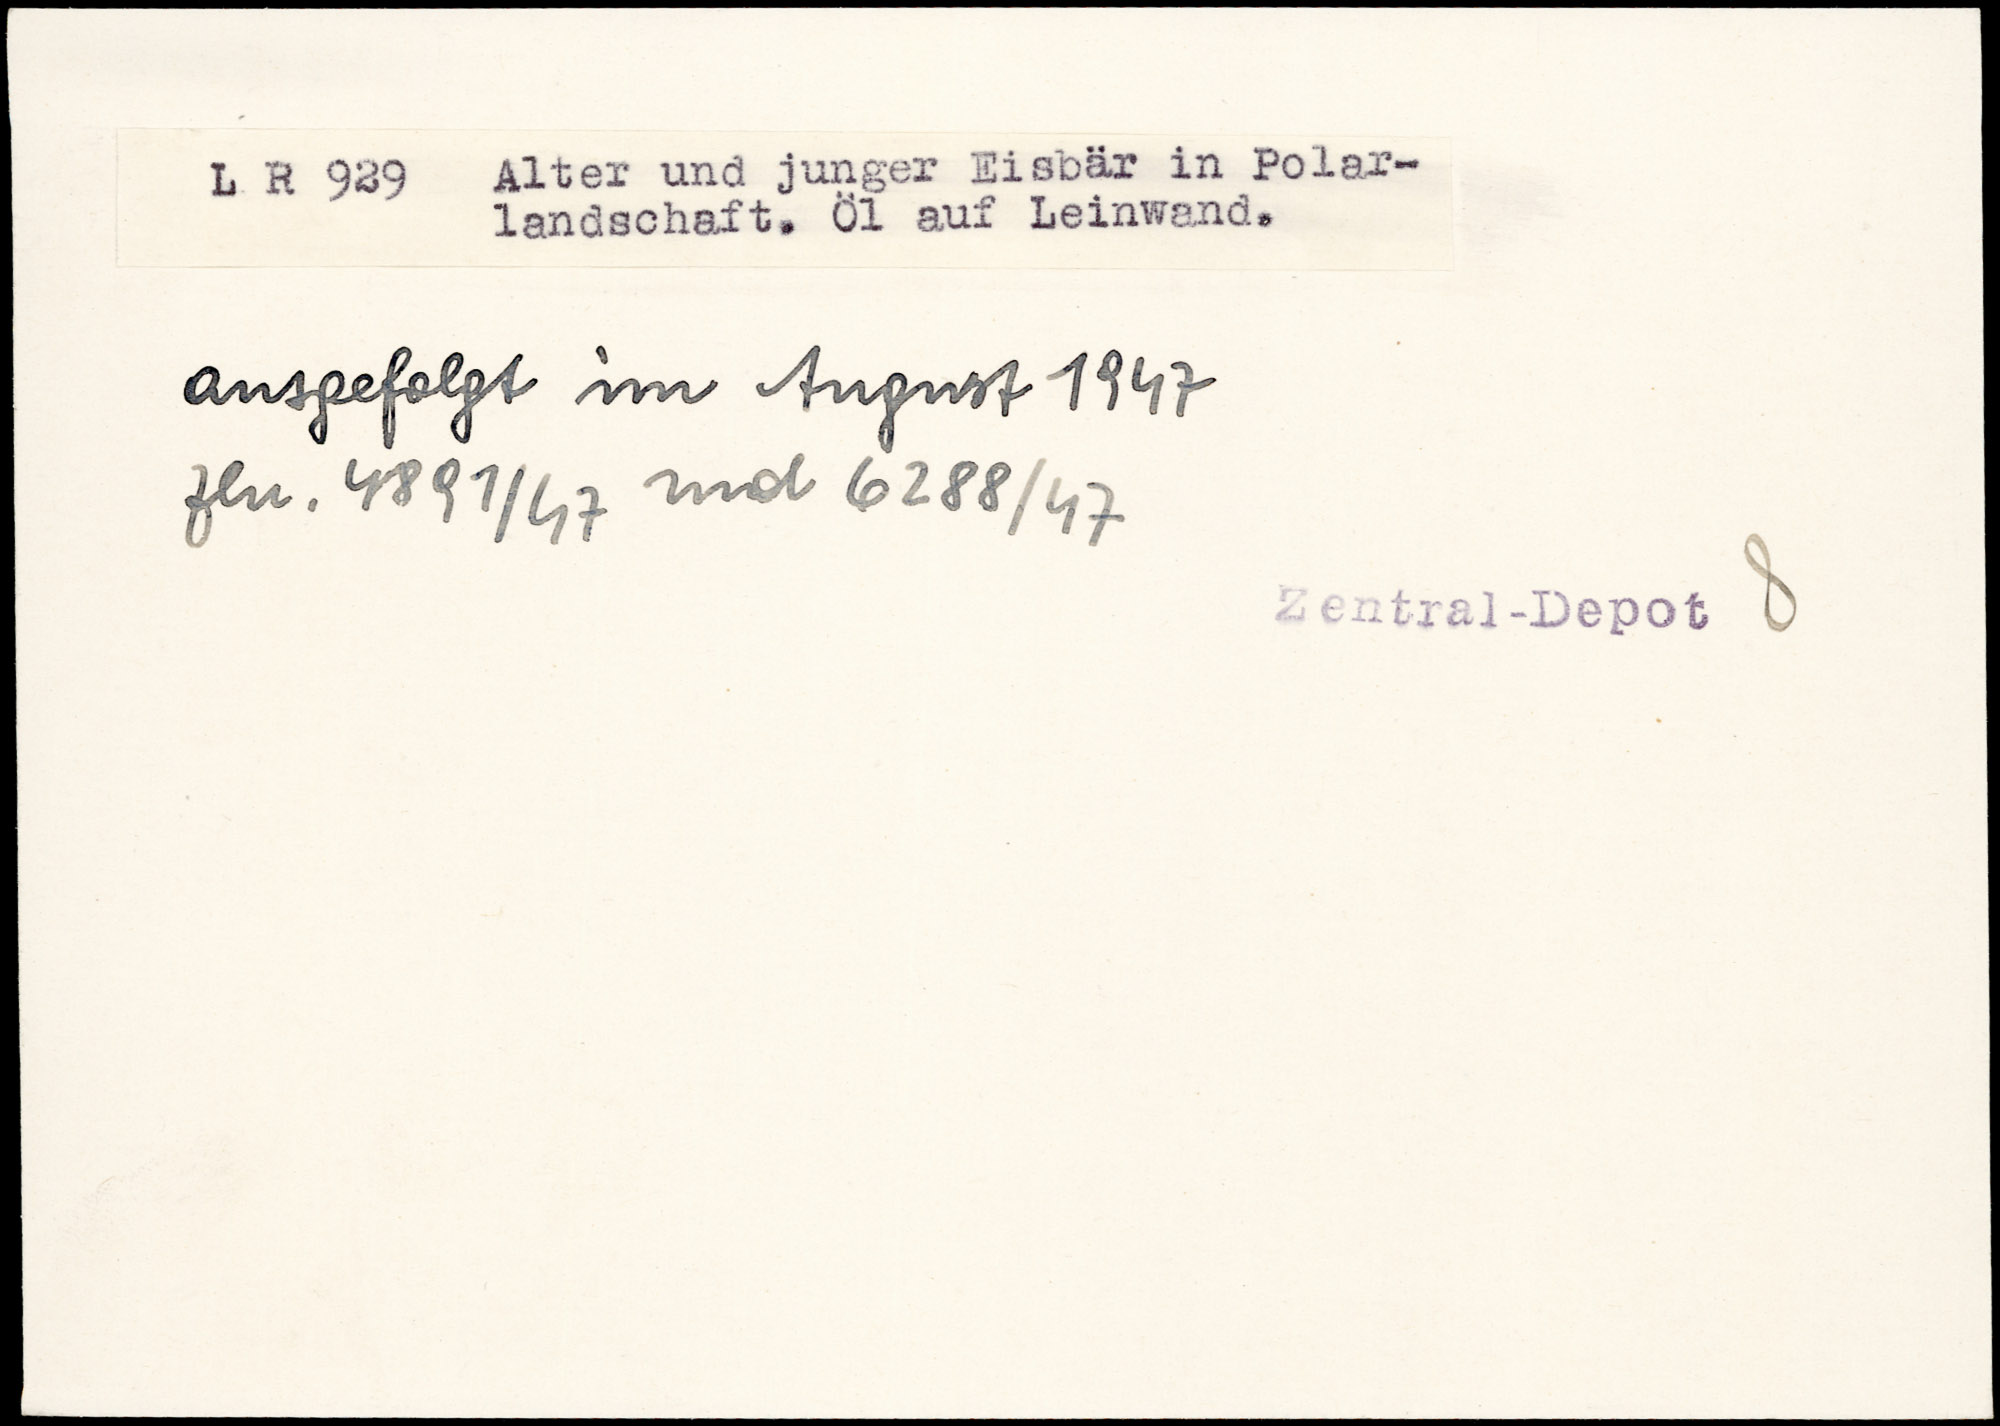 L R 929 Alter und junger Eisbär in Polar-
landschaft. Öl auf Leinwand.
ausgefolgt im August 1947
Zln. 4891/47 und 6288/47
Zentral-Depot 8